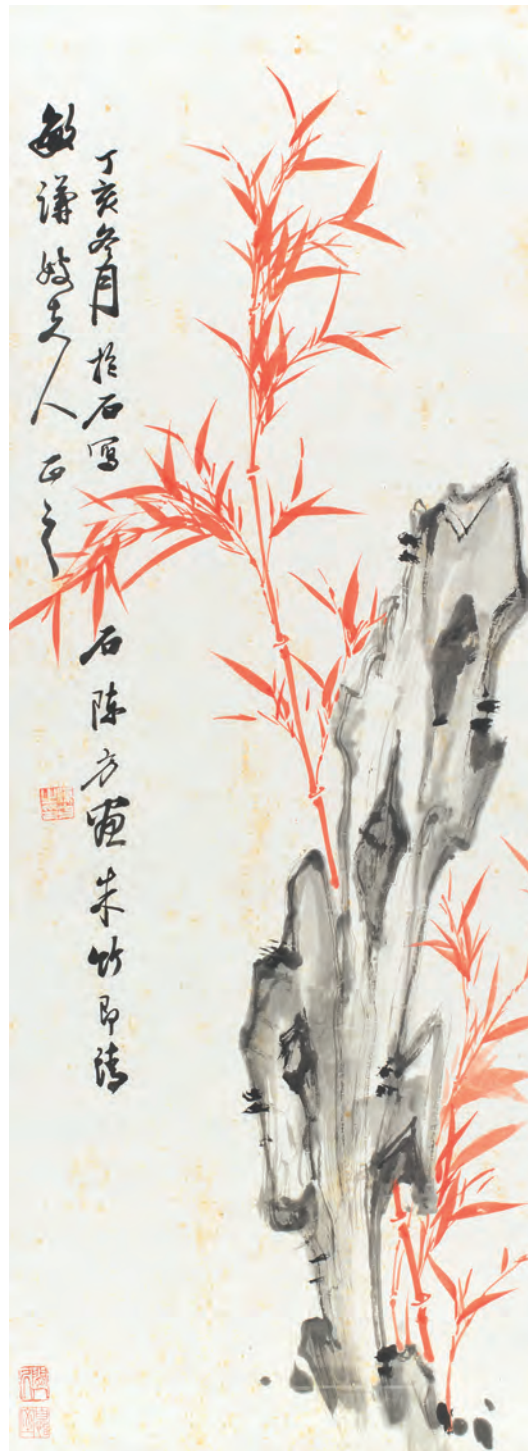 丁亥冬月於石寫石陳方畫朱竹即請
敏謙嫂夫人正之